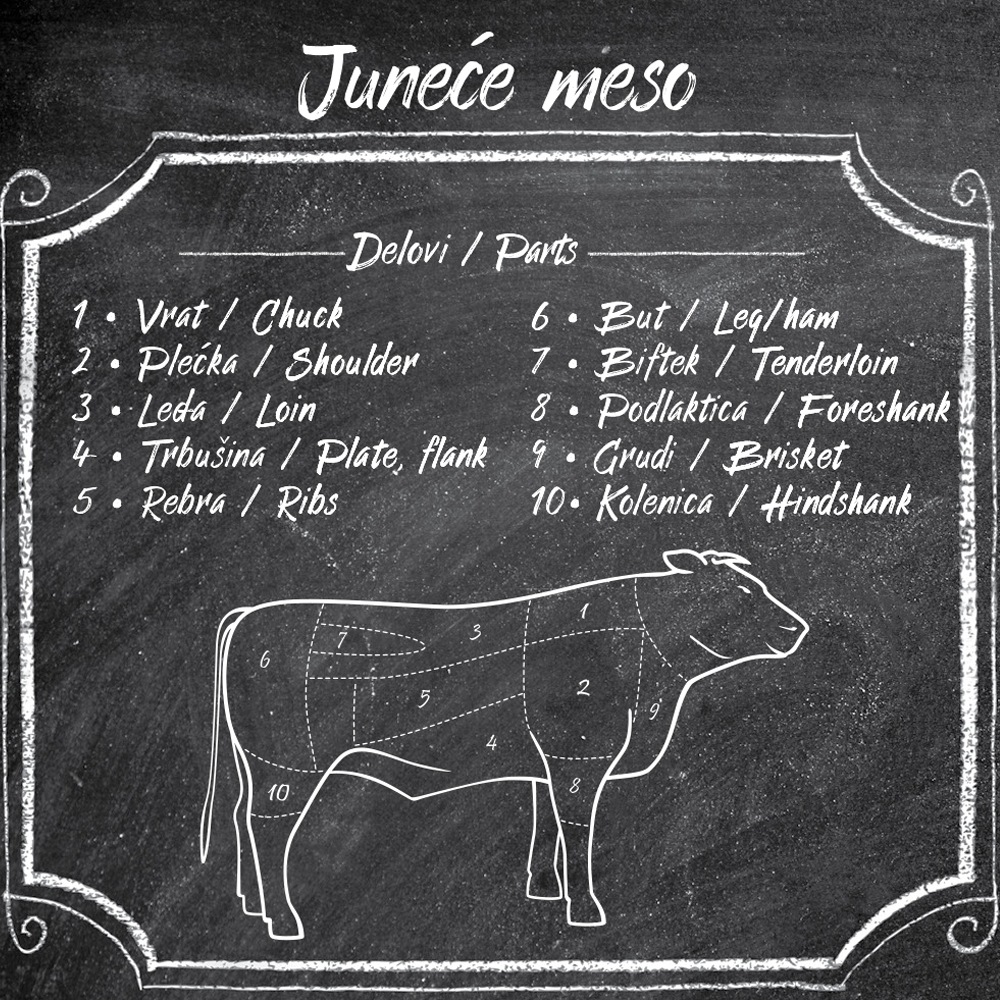 Juneće meso
Delovi / Parts
1 • Vrat / Chuck
2 • Plećka / Shoulder
3 • Leđa / Loin
4 • Trbušina / Plate, flank
5 • Rebra / Ribs
6 • But / Leg/ham
7 • Biftek / Tenderloin
8 • Podlaktica / Foreshank
9 • Grudi / Brisket
10 • Kolenica / Hindshank
1
7
3
6
2
5
9
4
8
10